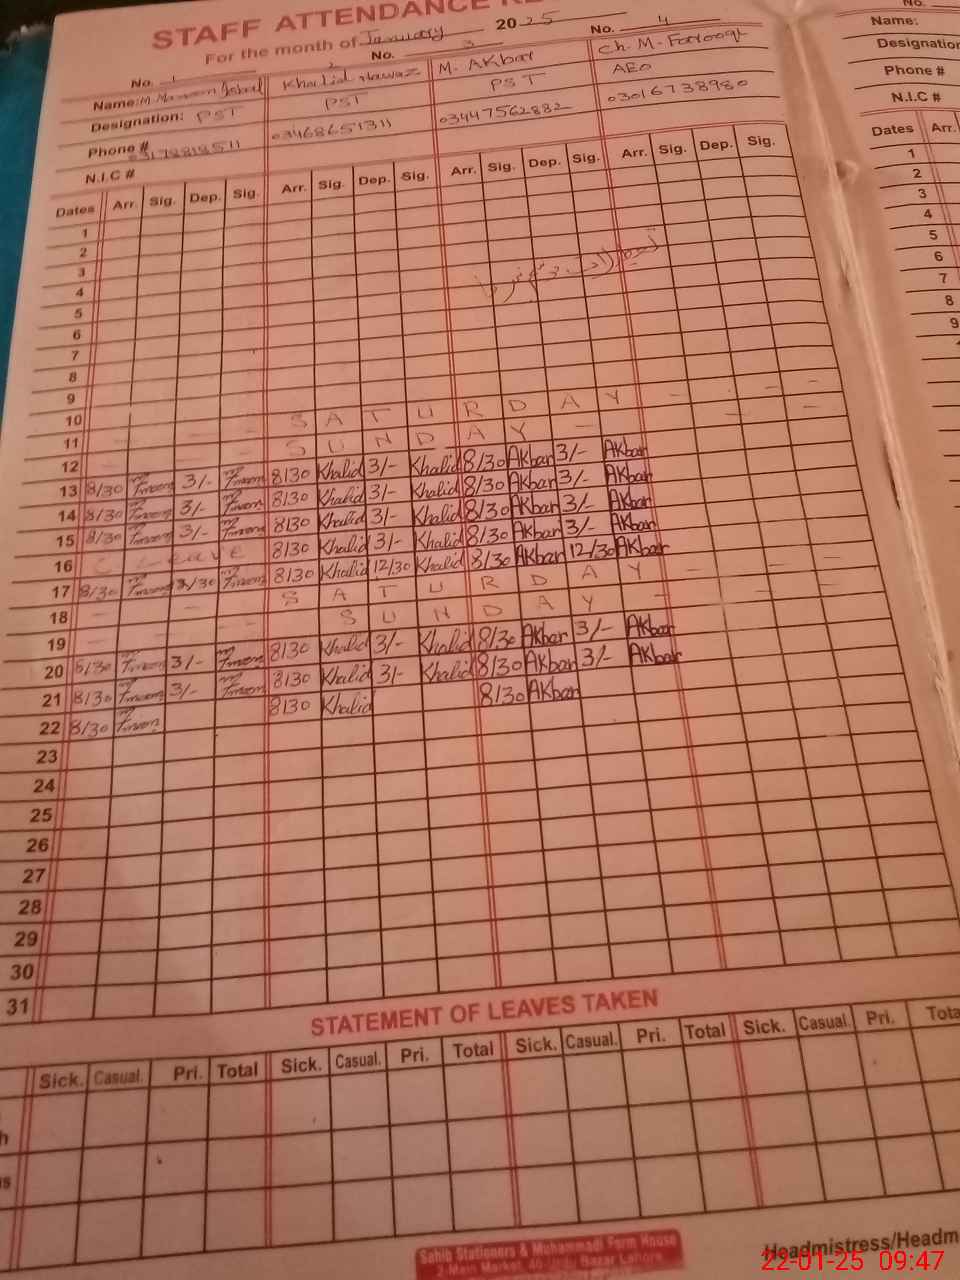 STAFF ATTENDANCE RE
For the month of January 2025
No. 1 2 No. 3 No. 4
Name: M. Khalid Nawaz M. AKbar Ch. M. Farooqi
Designation: PST PST PST AEO
Phone # 03178818511 03468651311 03447562882 03016738980
N.I.C #
Dates Arr. Sig. Dep. Sig. Arr. Sig. Dep. Sig. Arr. Sig. Dep. Sig. Arr. Sig. Dep. Sig.
1
2
3
4
5
6
7
8
9
10
11 - - - - S A T U R D A Y - - - -
12 - - - - S U N D A Y - - -
13 8/30 3/- 8/30 Khalid 3/- Khalid 8/30 AKbar 3/- AKbar
14 8/30 3/- 8/30 Khalid 3/- Khalid 8/30 AKbar 3/- AKbar
15 8/30 3/- 8/30 Khalid 3/- Khalid 8/30 AKbar 3/- AKbar
16 C Leave 8/30 Khalid 3/- Khalid 8/30 AKbar 3/- AKbar
17 8/30 8/30 Khalid 12/30 Khalid 8/30 AKbar 12/30 AKbar
18 - - - - S A T U R D A Y - - - -
19 - - - - S U N D A Y - - - -
20 8/30 3/- 8/30 Khalid 3/- Khalid 8/30 AKbar 3/- AKbar
21 8/30 3/- 8/30 Khalid 3/- Khalid 8/30 AKbar 3/- AKbar
22 8/30 8/30 Khalid 8/30 AKbar
23
24
25
26
27
28
29
30
31
STATEMENT OF LEAVES TAKEN
Sick. Casual. Pri. Total Sick. Casual. Pri. Total Sick. Casual. Pri. Total Sick. Casual. Pri. Tota
h
s
Sahib Stationers & Muhammadi Form House
2-Main Market, 40-Urdu Bazar Lahore
Headmistress/Headm
No.
Name:
Designation
Phone #
N.I.C #
Dates Arr.
1
2
3
4
5
6
7
8
9
22-01-25 09:47